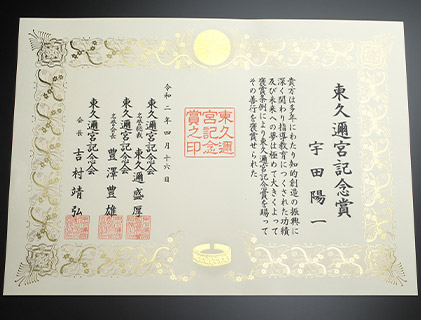 東久邇宮記念賞
宇田陽一
貴方は多年にわたり知的創造の振興に
深く関わり指導教育につくされた功績
及び未来への夢は極めて大きくよって
褒賞条例により東久邇宮記念賞を賜って
その善行を褒賞せられた
東久邇
宮記念
賞之印
令和二年四月十六日
東久邇宮記念会
名誉総裁 東久邇盛厚
東久邇宮記念会
名誉会長 豊澤豊雄
東久邇宮記念会
会長 吉村靖弘